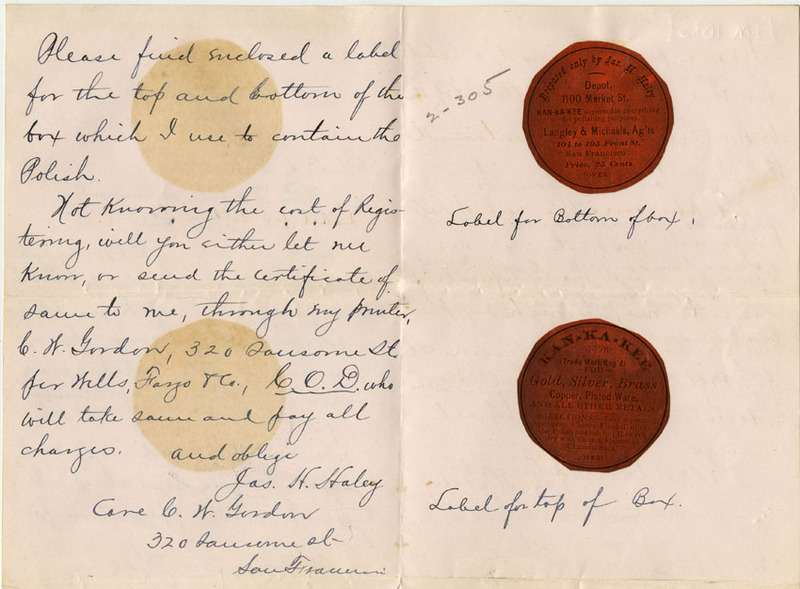 Please find enclosed a label
for the top and bottom of the
box which I use to contain the
Polish.
Not Knowing the cost of Regis-
tering, will you either let me
Know, or send the certificate of
same to me, through my printer,
C. W. Gordon, 320 Sansome St.
per Wells, Fargo & Co., C. O. D. who
will take same and pay all
charges. and oblige
Jas. H. Haley
Care C. W. Gordon
320 Sansome st
San Francisco
2-305
Prepared only by Jas. H. Haley
Depot,
1100 Market St.
KAN-KA-KEE supersedes everything
for polishing purposes.
Langley & Michaels, Ag'ts
101 to 105 Front St.
San Francisco.
Price, 25 Cents.
(OVER)
Label for Bottom of box.
KAN-KA-KEE
(Trade Mark Reg'd)
FOR
Gold, Silver, Brass
Copper, Plated Ware,
AND ALL OTHER METALS
(OVER)
Label for top of Box.